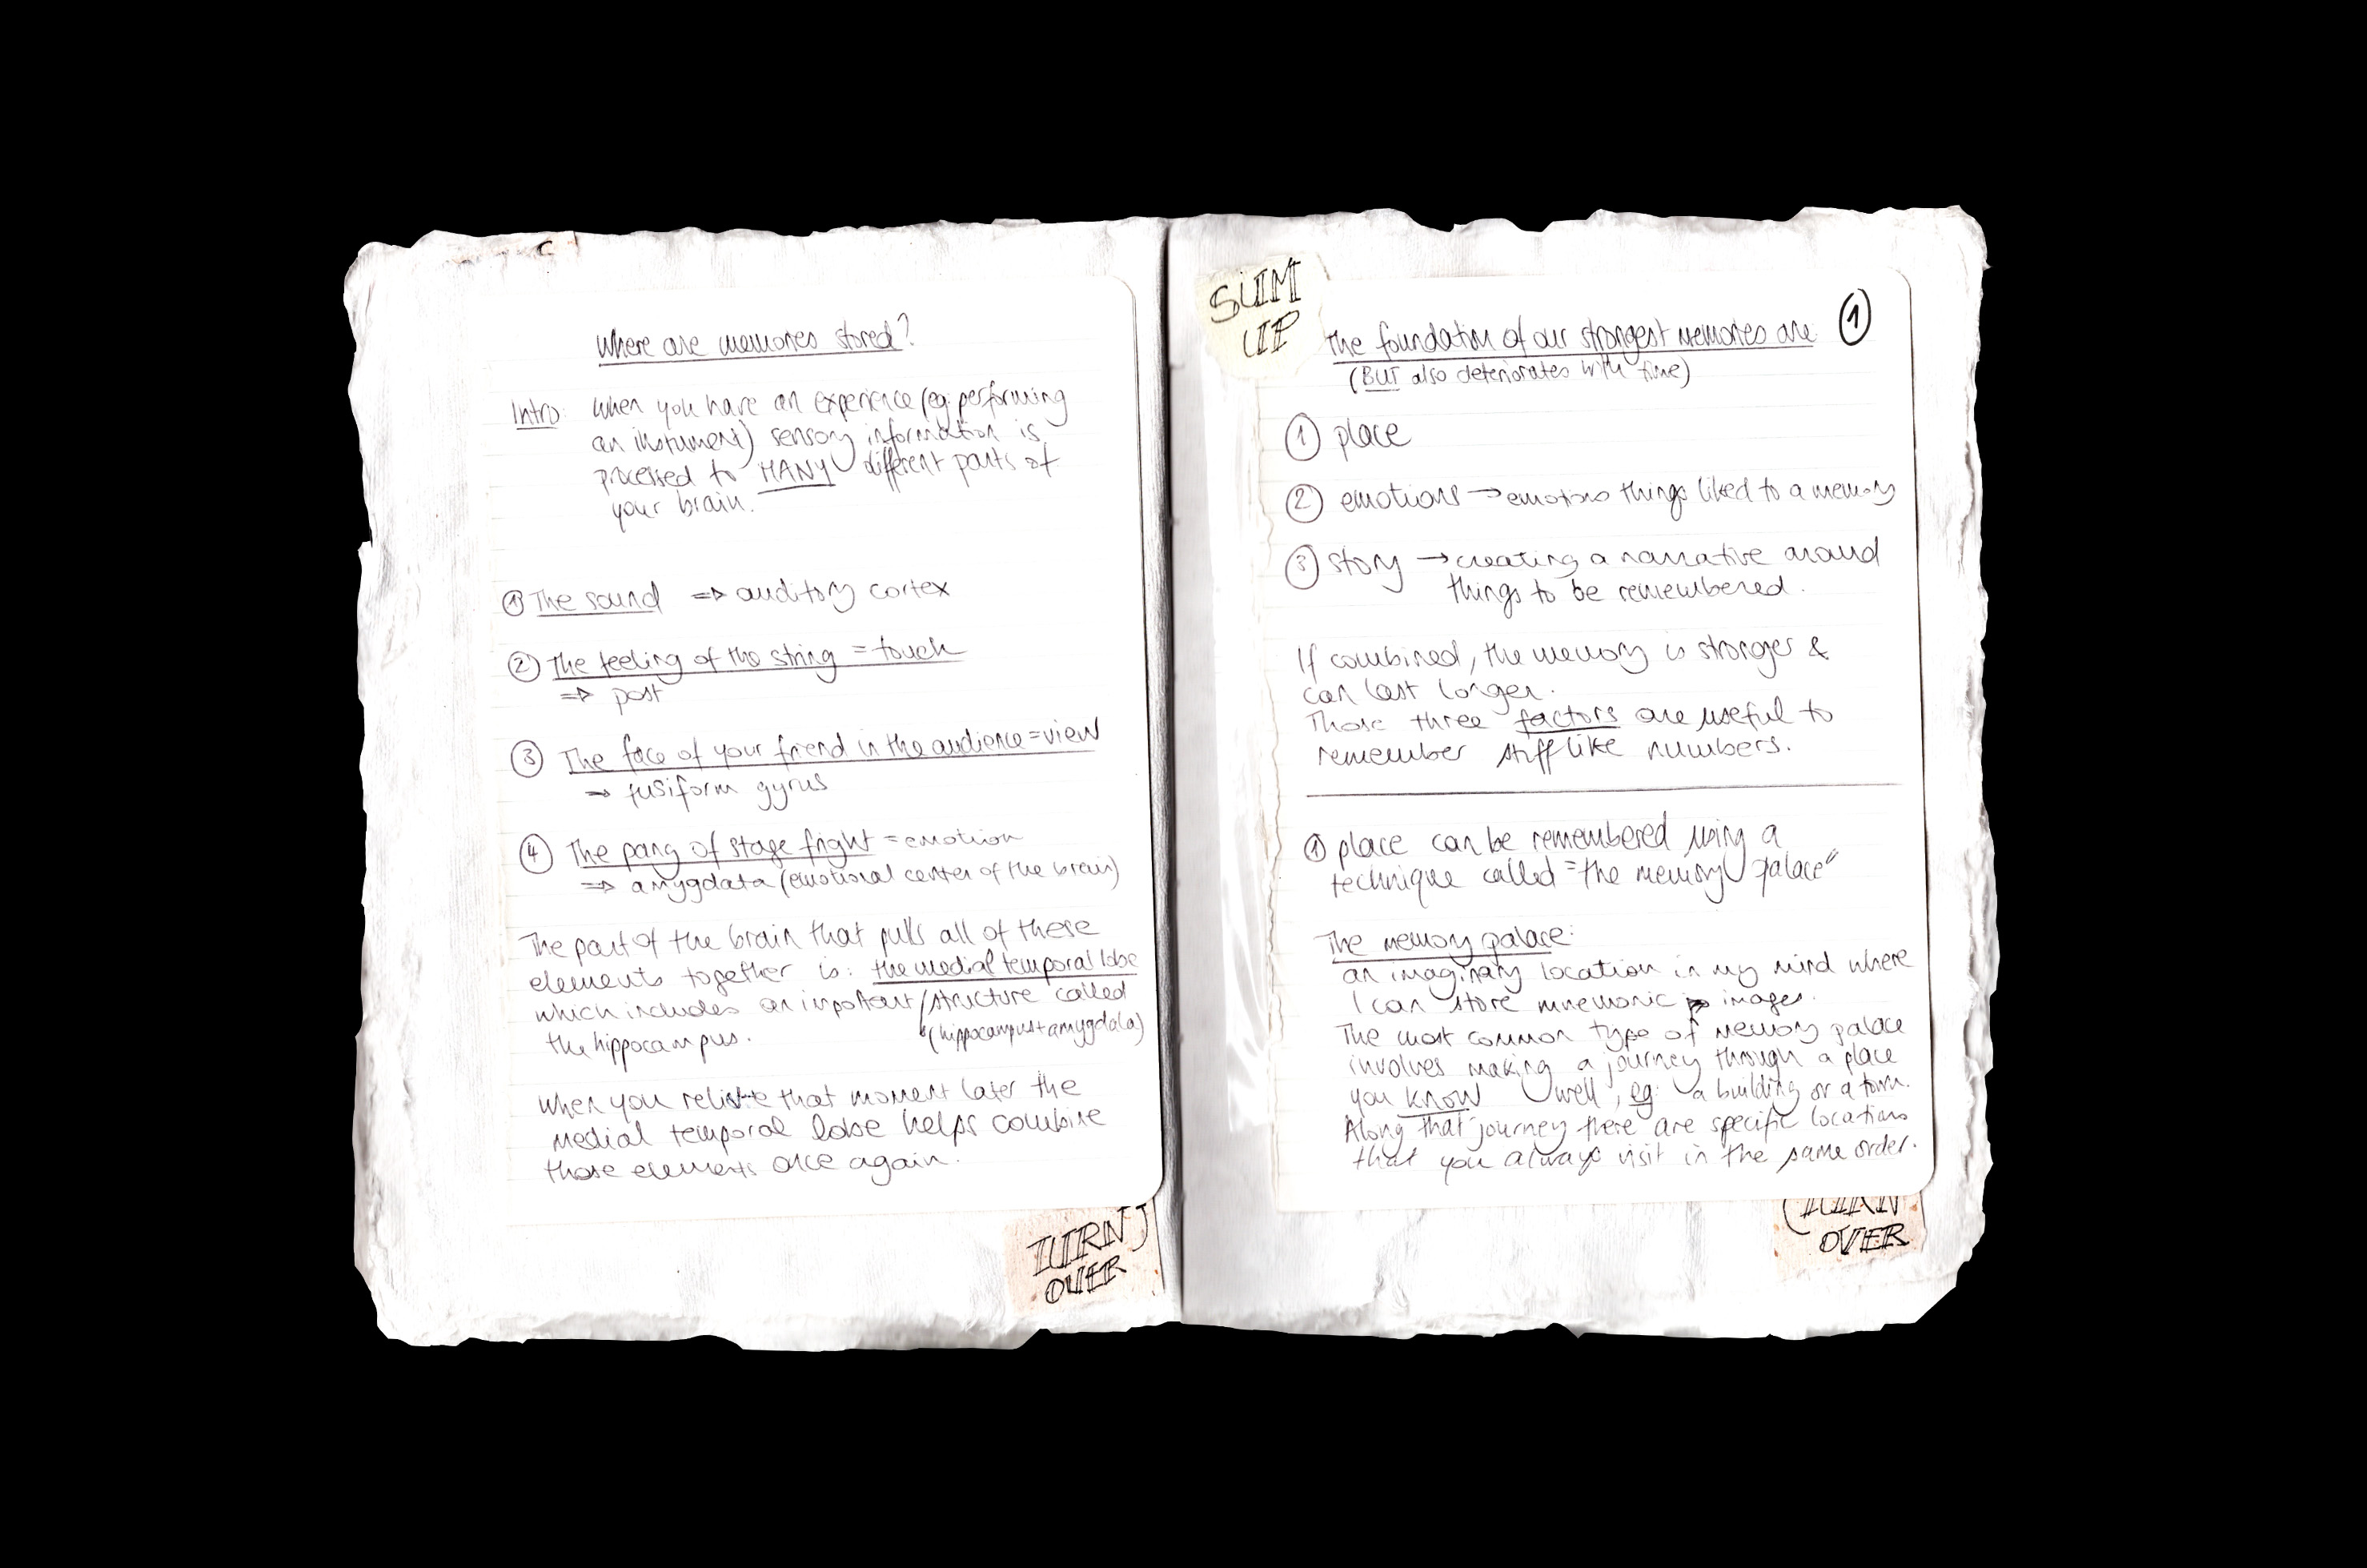 Where are memories stored?
Intro: When you have an experience (eg: performing
an instrument) sensory information is
processed to MANY different parts of
your brain.
① The sound ⇒ auditory cortex
② The feeling of the string = touch
⇒ post
③ The face of your friend in the audience = view
⇒ fusiform gyrus
④ The pang of stage fright = emotion
⇒ amygdata (emotional center of the brain)
The part of the brain that pulls all of these
elements together is: the medial temporal lobe
which includes an important structure called
the hippocampus. (hippocampus + amygdala)
When you relive that moment later the
medial temporal lobe helps combine
those elements once again.
TURN
OVER
SUM
UP
The foundation of our strongest memories are ①
(BUT also deteriorates with time)
① place
② emotions → emotions things liked to a memory
③ story → creating a narrative around
things to be remembered.
If combined, the memory is stronger &
can last longer.
Those three factors are useful to
remember stuff like numbers.
① place can be remembered using a
technique called "the memory palace"
The memory palace:
an imaginary location in my mind where
I can store mnemonic images.
The most common type of memory palace
involves making a journey through a place
you know well, eg: a building or a town.
Along that journey there are specific locations
that you always visit in the same order.
TURN
OVER